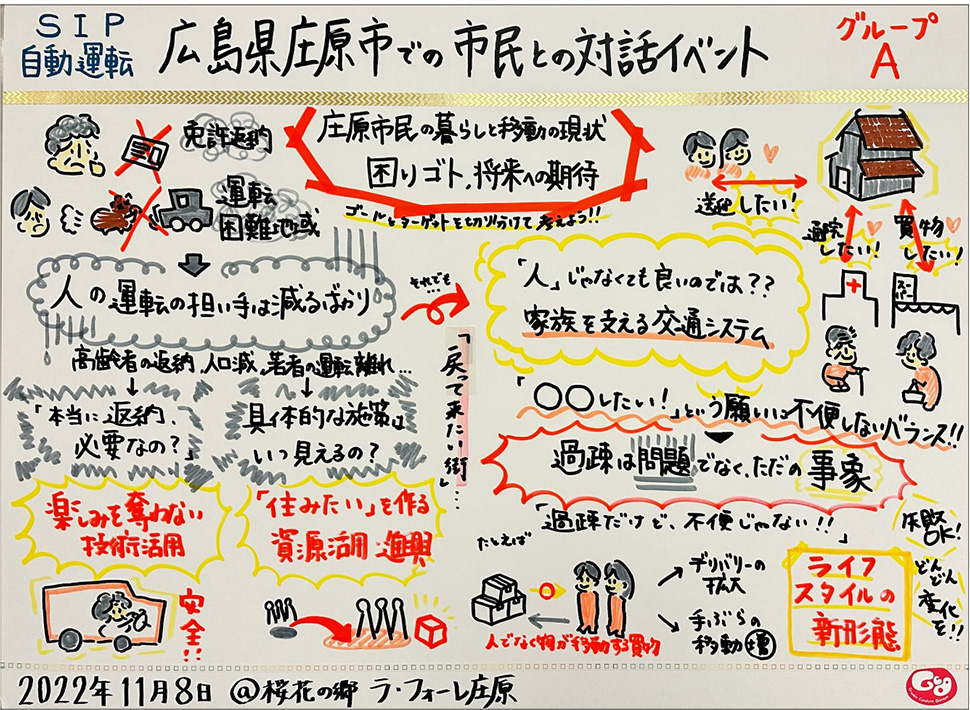 SIP
自動運転
広島県庄原市での市民との対話イベント
グループ
A
免許返納
運転
困難地域
庄原市民の暮らしと移動の現状
困りゴト,将来への期待
ゴールとターゲットをとり分けて考えよう!!
送迎したい!
通院
したい!
買物
したい!
人の運転の担い手は減るばかり
それでも
「人」じゃなくても良いのでは??
家族を支える交通システム
高齢者の返納,人口減,若者の運転離れ...
「本当に返納、
必要なの?」
具体的な施策は
いつ見えるの?
「戻って来たい街」...
「〇〇したい!」という願いに不便しないバランス!!
過疎は問題でなく、ただの事象
「過疎だけど、不便じゃない!!」
楽しみを奪わない
技術活用
「住みたい」を作る
資源活用 進興
安全!!
たとえば
人でなく物が移動する買物
デリバリーの
拡大
手ぶらの
移動増
ライフ
スタイルの
新形態
失敗
OK!
どんどん
変化
を!!
2022年11月8日 @桜花の郷 ラ・フォーレ庄原